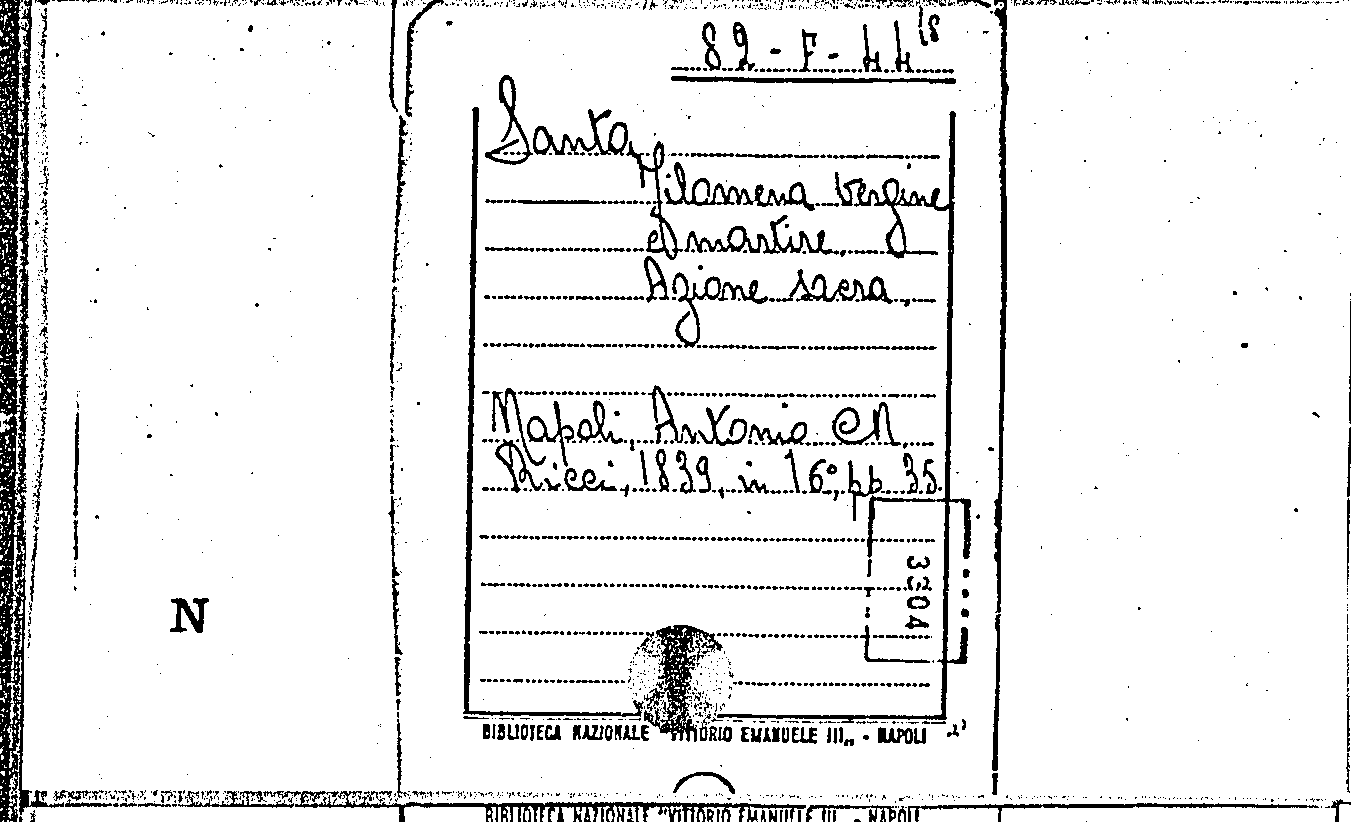 82-F-44 18
Santa
Filomena vergine
e martire.
Azione sacra.
Napoli, Antonio
Ricci, 1839, in 16°, pp 35.
3304
N
BIBLIOTECA NAZIONALE "VITTORIO EMANUELE III„ - NAPOLI
BIBLIOTECA NAZIONALE "VITTORIO EMANUELE III - NAPOLI